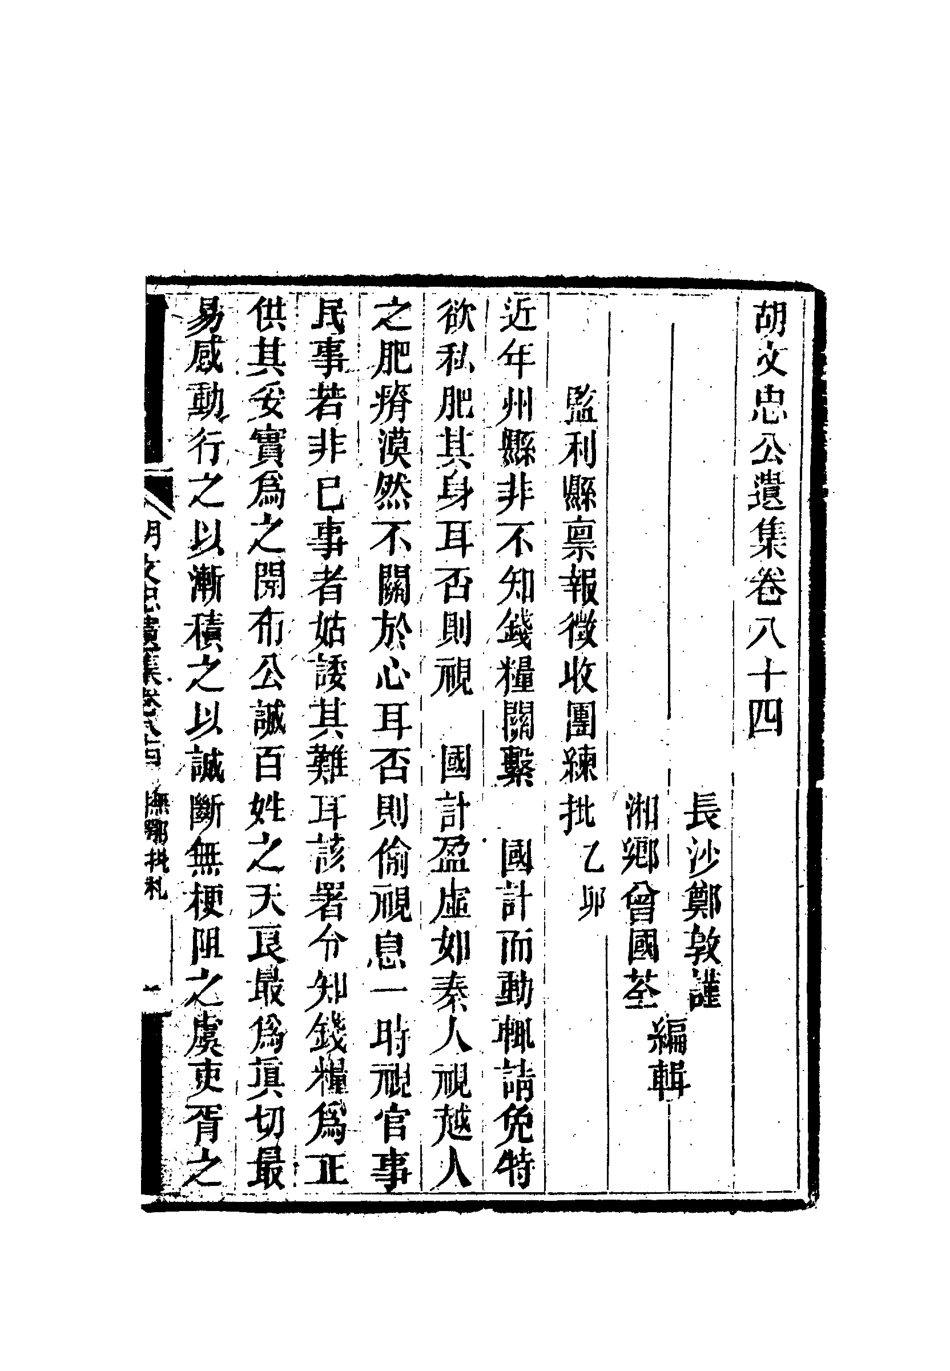 胡文忠公遺集卷八十四
長沙鄭敦謹
湘鄉曾國荃
編輯
監利縣稟報徵收團練批 乙卯
近年州縣非不知錢糧關繫 國計而動輒請免特
欲私肥其身耳否則視 國計盈虛如秦人視越人
之肥瘠漠然不關於心耳否則偷視息一時視官事
民事若非已事者姑諉其難耳該署令知錢糧爲正
供其妥實爲之開布公誠百姓之天良最爲真切最
易感動行之以漸積之以誠斷無梗阻之虞吏胥之
胡文忠遺集卷八十四 撫鄂批札 一